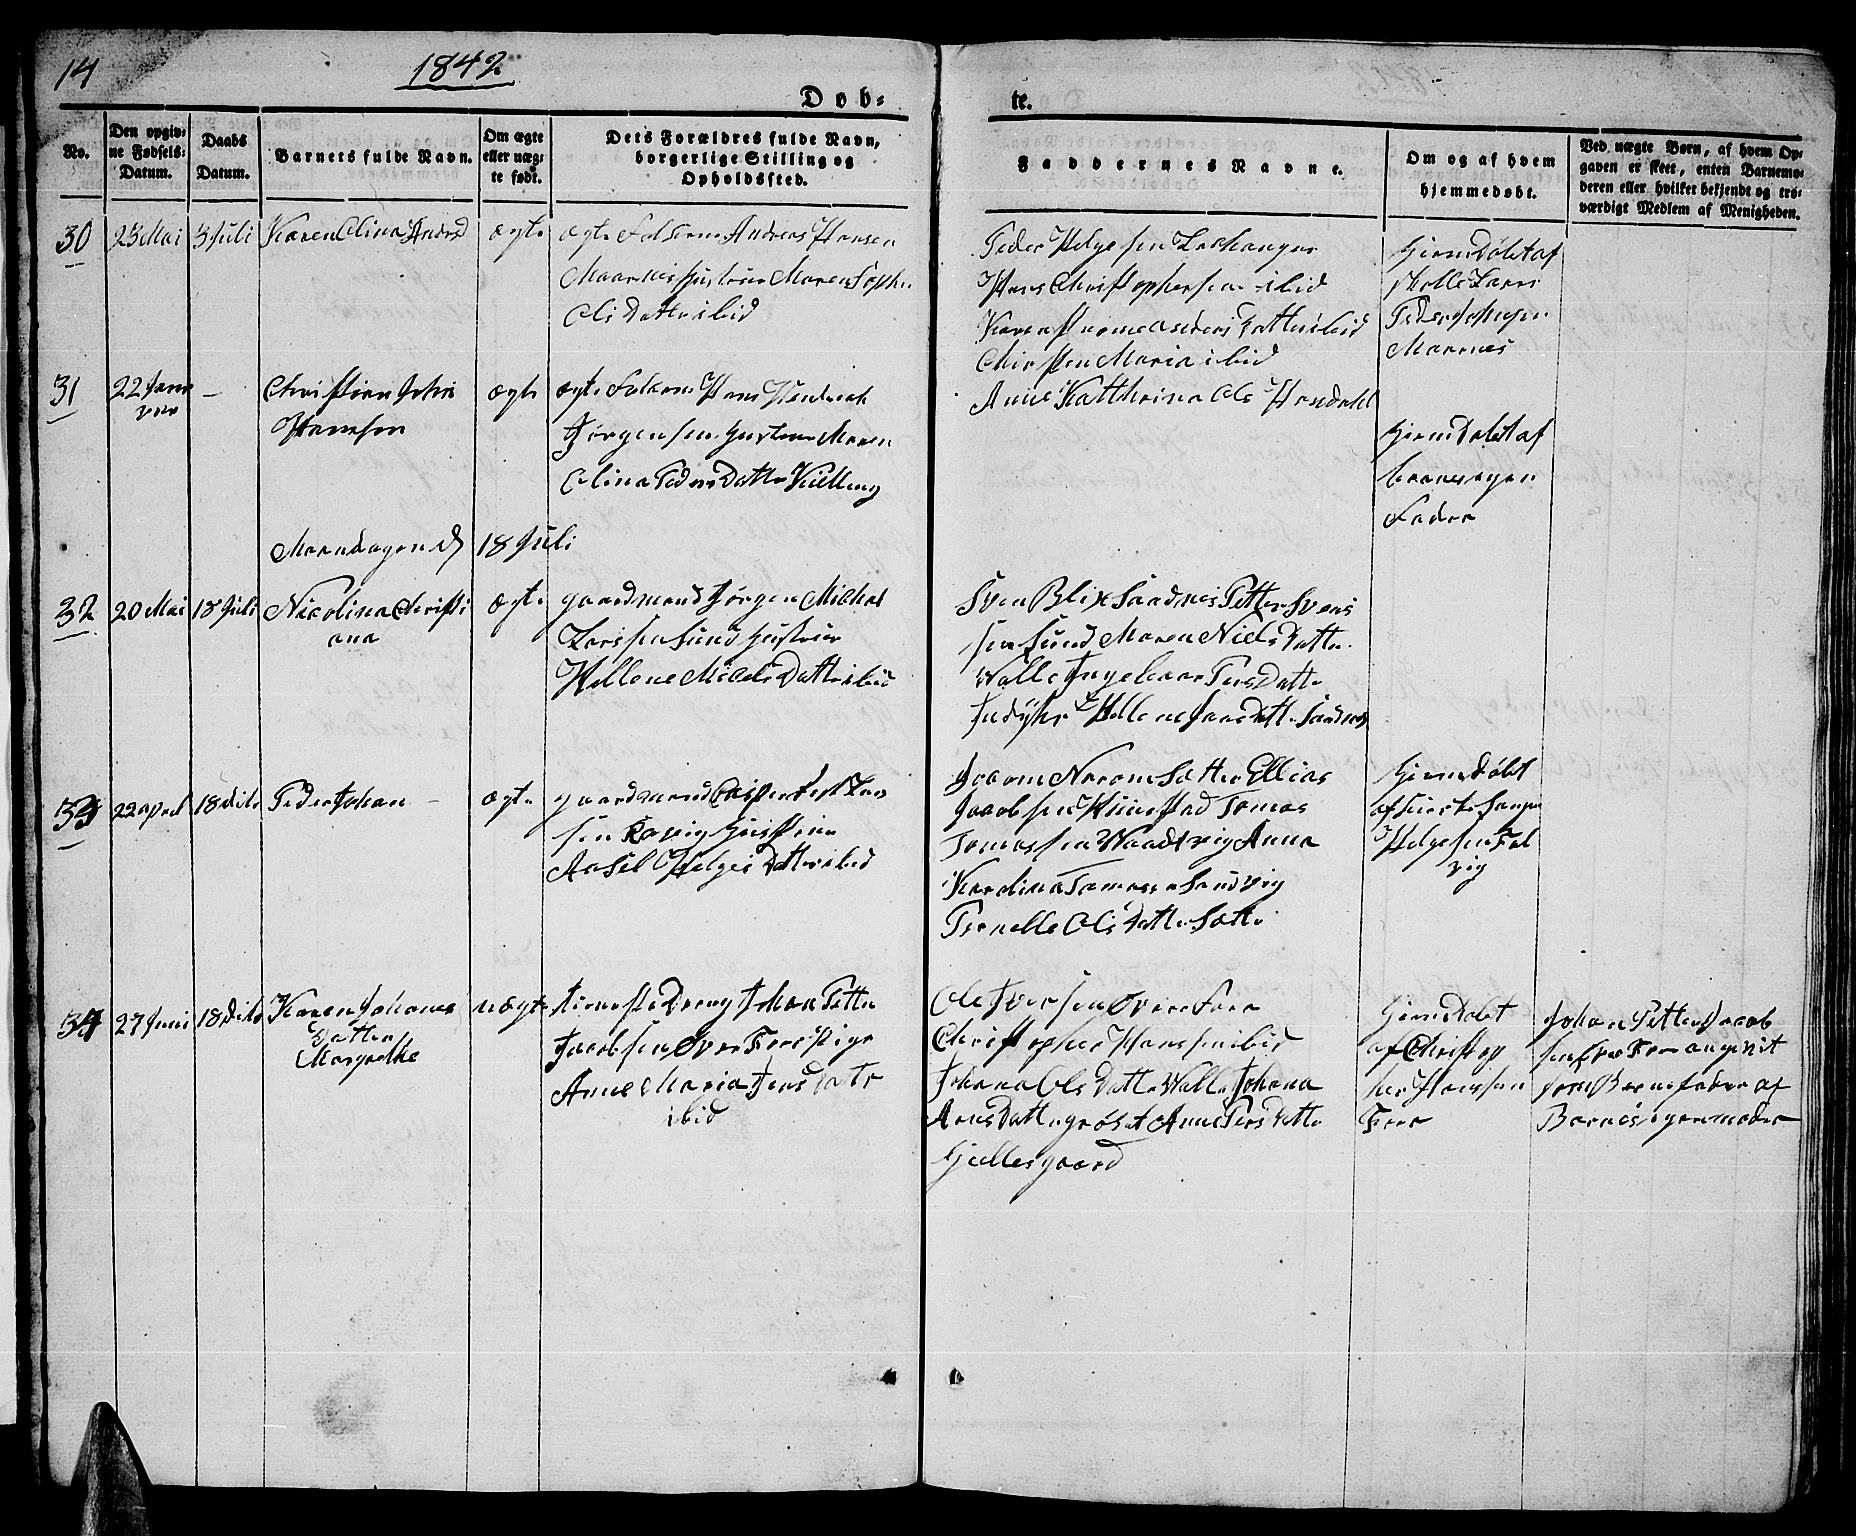 14
1842
Døb-
te.
No.
Den opgiv-
ne Fødsels-
Datum.
Daabs
Datum.
Barnets fulde Navn.
Om ægte
eller uæg-
te født.
Dets Forældres fulde Navn,
borgerlige Stilling og
Opholdssted.
Faddernes Navne.
Om og af hvem
hjemmedøbt.
Ved uægte Børn, af hvem Op-
gaven er skeet, enten Barnemo-
deren eller hvilket bekjendt og tro-
værdigt Medlem af Menigheden.
30
23 Mai
3 Juli
Karen Olina Anders D
ægte
ægte Folk Andreas Hansen
Maarnes Hustrue Maren Sophie
Ols Datter ibid
Peder Helgesen
Hans Christophersen ibid
Karen Anders Datter ibid
Christen Maria ibid
Anne Kathrina Ols
Hiemdøbt af
Peder Johnsen
Maarnes
31
22 Janu
var
-
Christian John
Hansen
ægte
ægte Folk Hans Hendrich
Jørgensen Hustrue Maren
Olina Peders Datter
Hiemdøbt af
Barnes egen
Fader
Mandagen d 18 Juli
32
20 Mai
18 Juli
Nicolina Christi
ana
ægte
gaardmand Jørgen Michal
Larssen Sund Hustrue
Hellene Michels Datter ibid
Sven Blix Sandnes Petter Svens
sen Sund Maren Niels Datter
Valle Ingebaar Pers Datter
Hellene Jans Datter Sandnes
33
22 april
18 dito
Peder Johan -
ægte
gaardmand Casper
sen Hustrue
Aasel Helges Datter ibid
Sætter Ellias
Jacobsen Tomas
Tomassen Anna
Kardina Tomas Sandvig
Pernelle Ols Datter Sætte
Hiemdøbt
af
Helgesen Fel
vig
34
27 Juni
18 dito
Karen Johanes
Datter
Margrethe
uægte
Tieneste Dreng Johan Petter
Jacobsen Øvre Fore Pige
Anne Maria Jens Dater
ibid
Ole Iversen Øvre Fore
Christopher Hanssen ibid
Johana Ols Datter Valle Johana
Arns Datter Anne Pers Datter
Gjellesgaard
Hiemdøbt
af Christop
her Hanssen
Fore
Johan Petter Jacob
sen Øvre Fore angivit
som Barnefader af
Barnes egen moder